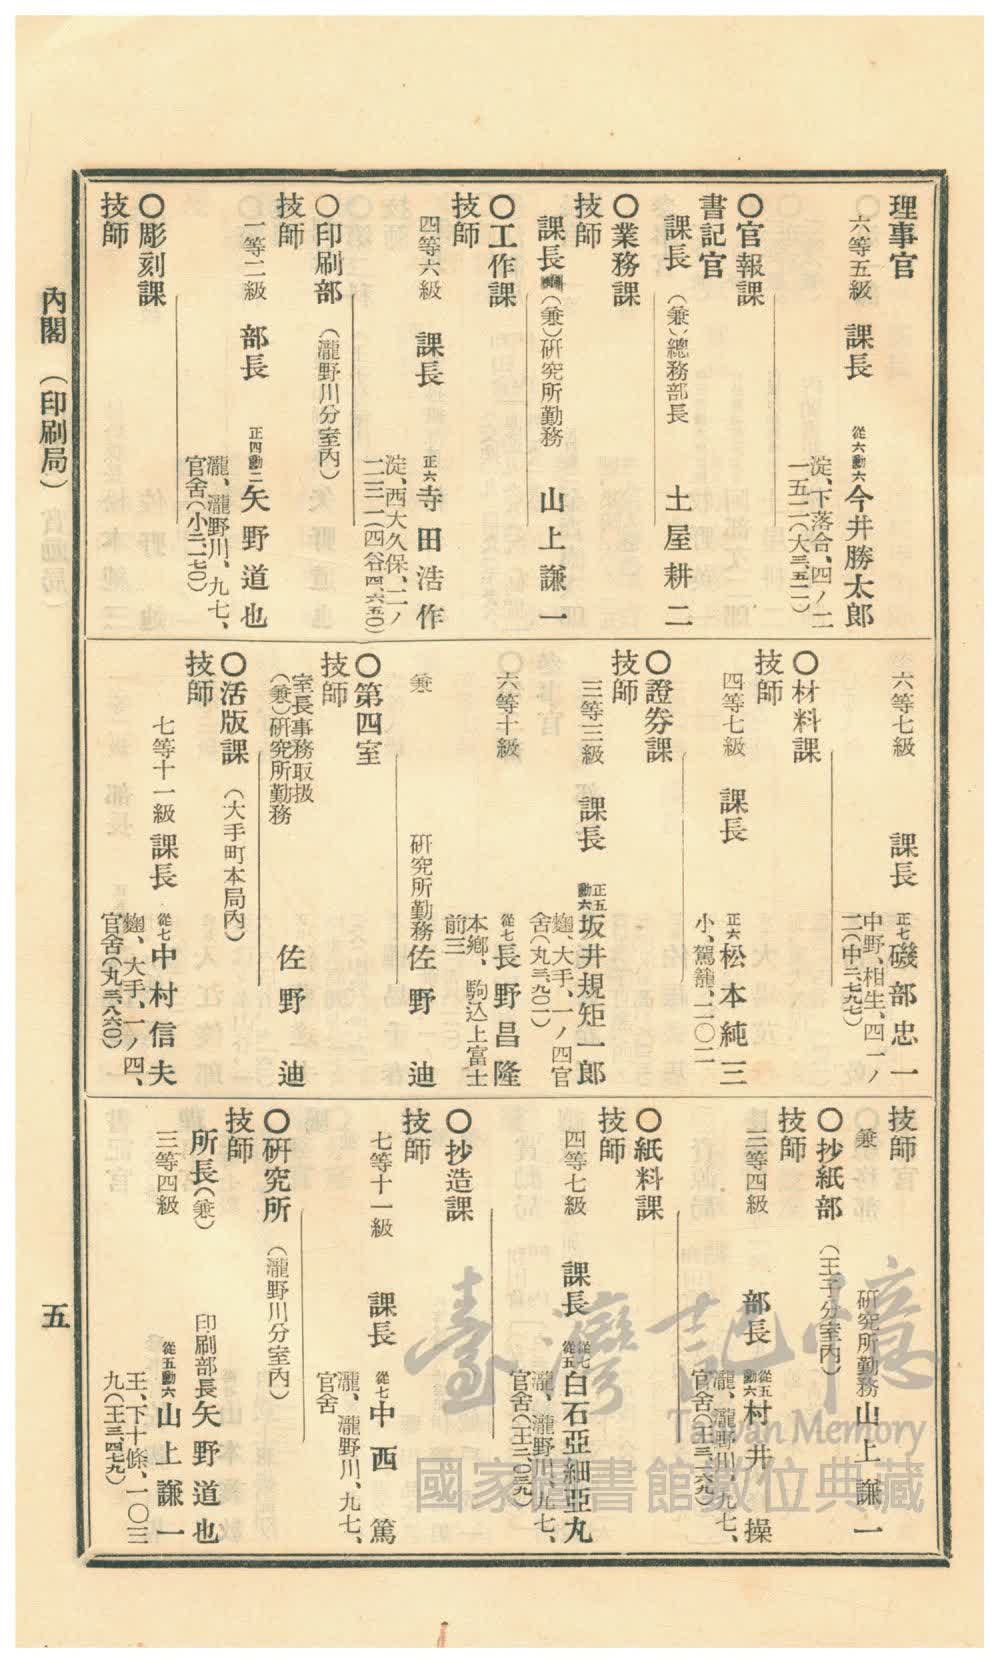 理事官
六等五級 課長 從六勳六 今井勝太郎
淀、下落合、四ノ二
一五二(大三、五二一)
〇官報課
書記官
課長 (兼)總務部長 土屋耕二
〇業務課
技師
課長 (兼)硏究所勤務 山上謙一
〇工作課
技師
四等六級 課長 正六 寺田浩作
淀、西大久保、二ノ
一二三一(四谷四、六五〇)
〇印刷部 (瀧野川分室內)
技師
一等二級 部長 正四勳二 矢野道也
瀧、瀧野川、九七、
官舍(小二、一七〇)
〇彫刻課
技師
六等七級 課長 正七 磯部忠一
中野、相生、四一ノ
二(中二、七九七)
〇材料課
技師
四等七級 課長 正六 松本純三
小、駕籠、二〇二
〇證券課
技師
三等三級 課長 正五勳六 坂井規矩一郎
麴、大手、一ノ四官
舍(丸三、九〇一)
六等十級 從七 長野昌隆
本鄕、駒込上富士
前三
兼 硏究所勤務 佐野迪
〇第四室
技師
室長事務取扱
(兼)硏究所勤務 佐野迪
〇活版課 (大手町本局內)
技師
七等十一級 課長 從七 中村信夫
麴、大手、一ノ四、
官舍(丸三、八六〇)
技師
兼 硏究所勤務 山上謙一
〇抄紙部 (王子分室內)
技師
三等四級 部長 從五勳六 村井操
瀧、瀧野川、九七、
官舍(王三、二六九)
〇紙料課
技師
四等七級 課長 從七從五 白石亞細亞丸
瀧、瀧野川、九七、
官舍(王二、〇三九)
〇抄造課
技師
七等十一級 課長 從七 中西篤
瀧、瀧野川、九七、
官舍
〇硏究所 (瀧野川分室內)
技師
所長(兼) 印刷部長 矢野道也
三等四級 從五勳六 山上謙一
王、下十條、一〇三
九(王三、四七九)
內閣 (印刷局)
五
臺灣記憶
Taiwan Memory
國家圖書館數位典藏